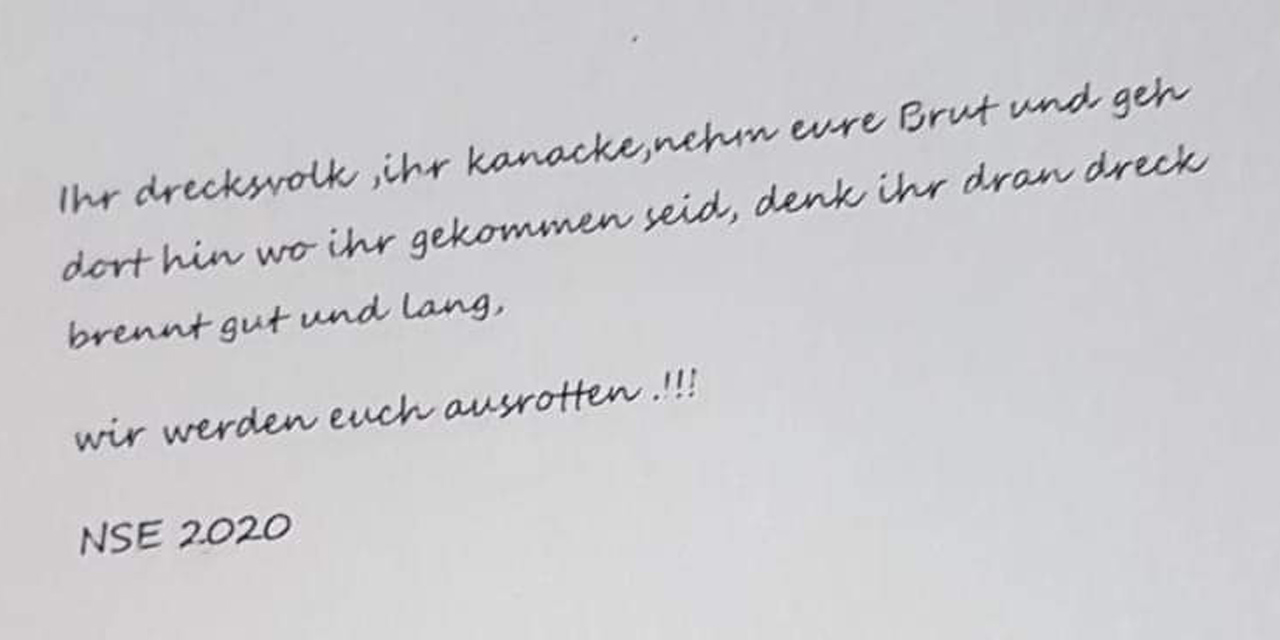 Ihr drecksvolk ,ihr kanacke,nehm eure Brut und geh
dort hin wo ihr gekommen seid, denk ihr dran dreck
brennt gut und lang,
wir werden euch ausrotten .!!!
NSE 2020